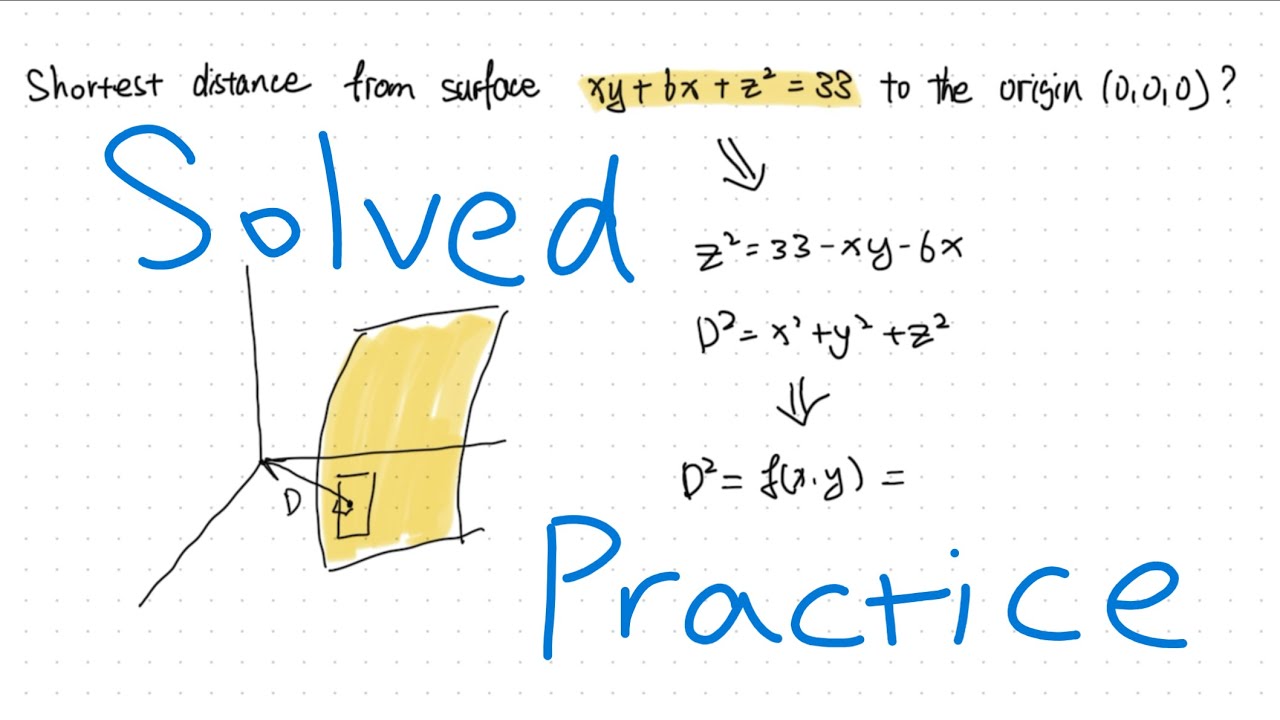 Shortest distance from surface xy + 6x + z² = 33 to the origin (0,0,0)?
Solved
z² = 33 - xy - 6x
D² = x² + y² + z²
D² = f(x,y) =
D
Practice